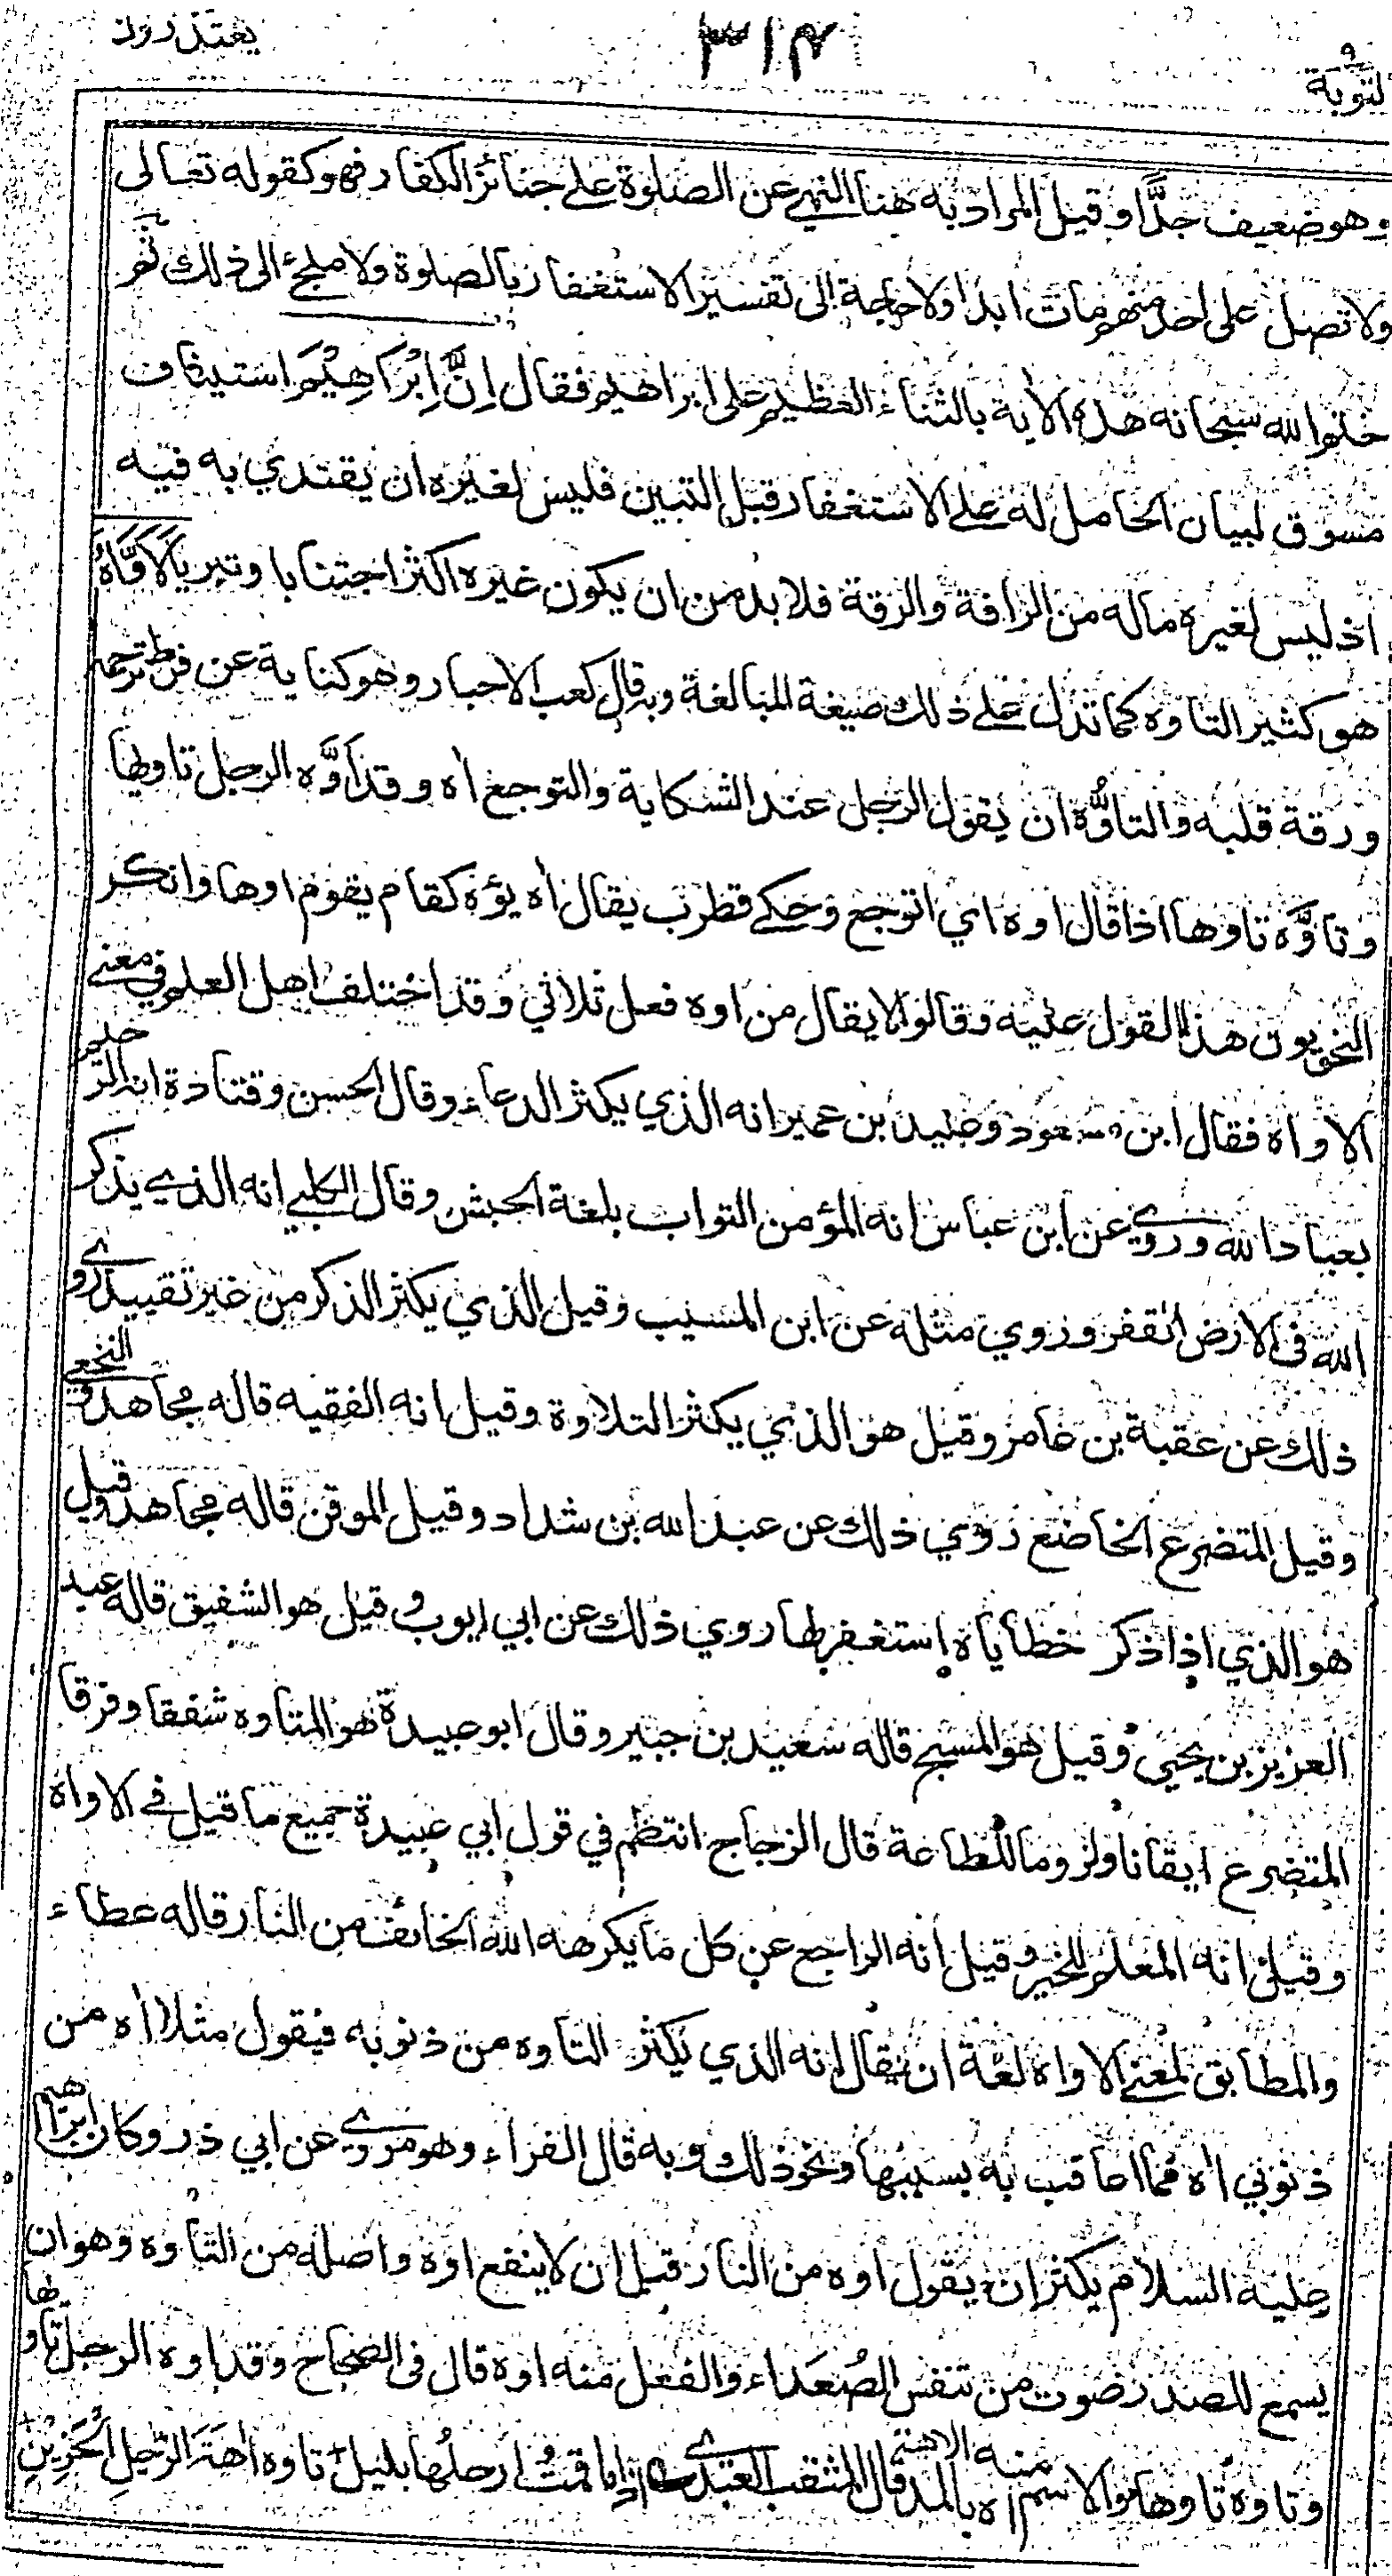 يعتذرون
٣١٣
التوبة ٩
وهو ضعيف جدًّا وقيل المراد به هنا النهي عن الصلوة على جنائز الكفار فهو كقوله تعالى
ولا تصل على احد منهم مات ابدا ولا حاجة الى تفسير الاستغفار بالصلوة ولا ملجئ الى ذلك ثم
ختم الله سبحانه هذه الأية بالثناء العظيم على ابراهيم فقال اِنَّ اِبْرَاهِيْمَ استيناف
مسوق لبيان الحامل له على الاستغفار قبل التبين فليس لغيره ان يقتدي به فيه
اذ ليس لغيره ماله من الرافة والرقة فلا بد من ان يكون غيره اكثر اجتنابا وتبريا لَاَوَّاهٌ
هو كثير التاوه كما تدل على ذلك صيغة المبالغة وبه قال كعب الاحبار وهو كناية عن فرط ترحمه
ورقة قلبه والتاوُّه ان يقول الرجل عند الشكاية والتوجع أه وقد اَوَّه الرجل تاويها
وتاوَّه تاوها اذا قال اوه اي اتوجع وحكى قطرب يقال أه يؤه كقام يقوم اوها وانكر
النحويون هذا القول عليه وقالوا لا يقال من اوه فعل ثلاثي وقد اختلف اهل العلم في معنى
الاواه فقال ابن مسعود وعبيد بن عمير انه الذي يكثر الدعاء وقال الحسن وقتادة انه الرحيم
بعباد الله وروي عن ابن عباس انه المؤمن التواب بلغة الحبش وقال الكلبي انه الذي يذكر
الله في الارض القفر وروي مثله عن ابن المسيب وقيل الذي يكثر الذكر من غير تقييد روي
ذلك عن عقبة بن عامر وقيل هو الذي يكثر التلاوة وقيل انه الفقيه قاله مجاهد والنخعي
وقيل المتضرع الخاضع روي ذلك عن عبد الله بن شداد وقيل الموقن قاله مجاهد وقيل
هو الذي اذا ذكر خطاياه استغفر لها روي ذلك عن ابي ايوب وقيل هو الشفيق قاله عبد
العزيز بن يحيى وقيل هو المسبح قاله سعيد بن جبير وقال ابو عبيدة هو المتاوه شفقا وفرقا
المتضرع ايقانا ولزوما للطاعة قال الزجاج انتظم في قول ابي عبيدة جميع ما قيل في الاواه
وقيل انه المعلم للخير وقيل انه الراجع عن كل ما يكرهه الله الخائف من النار قاله عطاء
والمطابق لمعنى الاواه لغة ان يقال انه الذي يكثر التاوه من ذنوبه فيقول مثلا أه من
ذنوبي أه مما اعاقب به بسببها ونحو ذلك وبه قال الفراء وهو مروي عن ابي ذر وكان ابراهيم
عليه السلام يكثر ان يقول اوه من النار قبل ان لا ينفع اوه واصله من التاوه وهو ان
يسمع للصدر صوت من تنفس الصُعَداء والفعل منه اوه قال في الصحاح وقد اوه الرجل تاويها
وتاوه تاوها والاسم منه الأهة بالمد قال المثقب العبدي اِذا ما قمتُ ارحلُها بليل تاوه اٰهَةَ الرجلِ الحَزِيْنِ